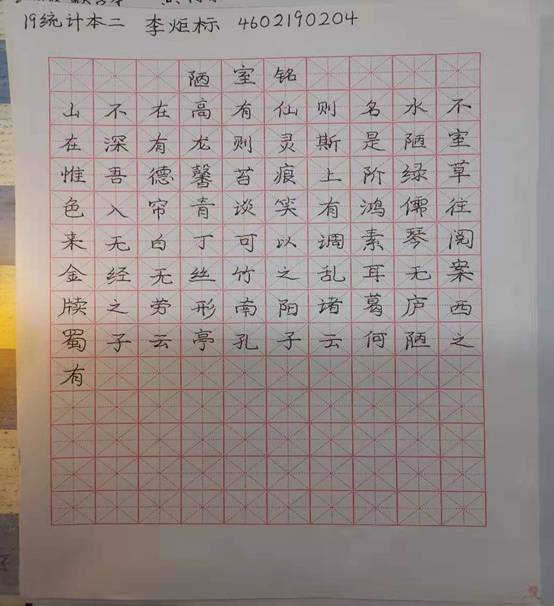 19统计本二 李炬标 4602190204
陋室铭
山不在高有仙则名水不
在深有龙则灵斯是陋室
惟吾德馨苔痕上阶绿草
色入帘青谈笑有鸿儒往
来无白丁可以调素琴阅
金经无丝竹之乱耳无案
牍之劳形南阳诸葛庐西
蜀子云亭孔子云何陋之
有